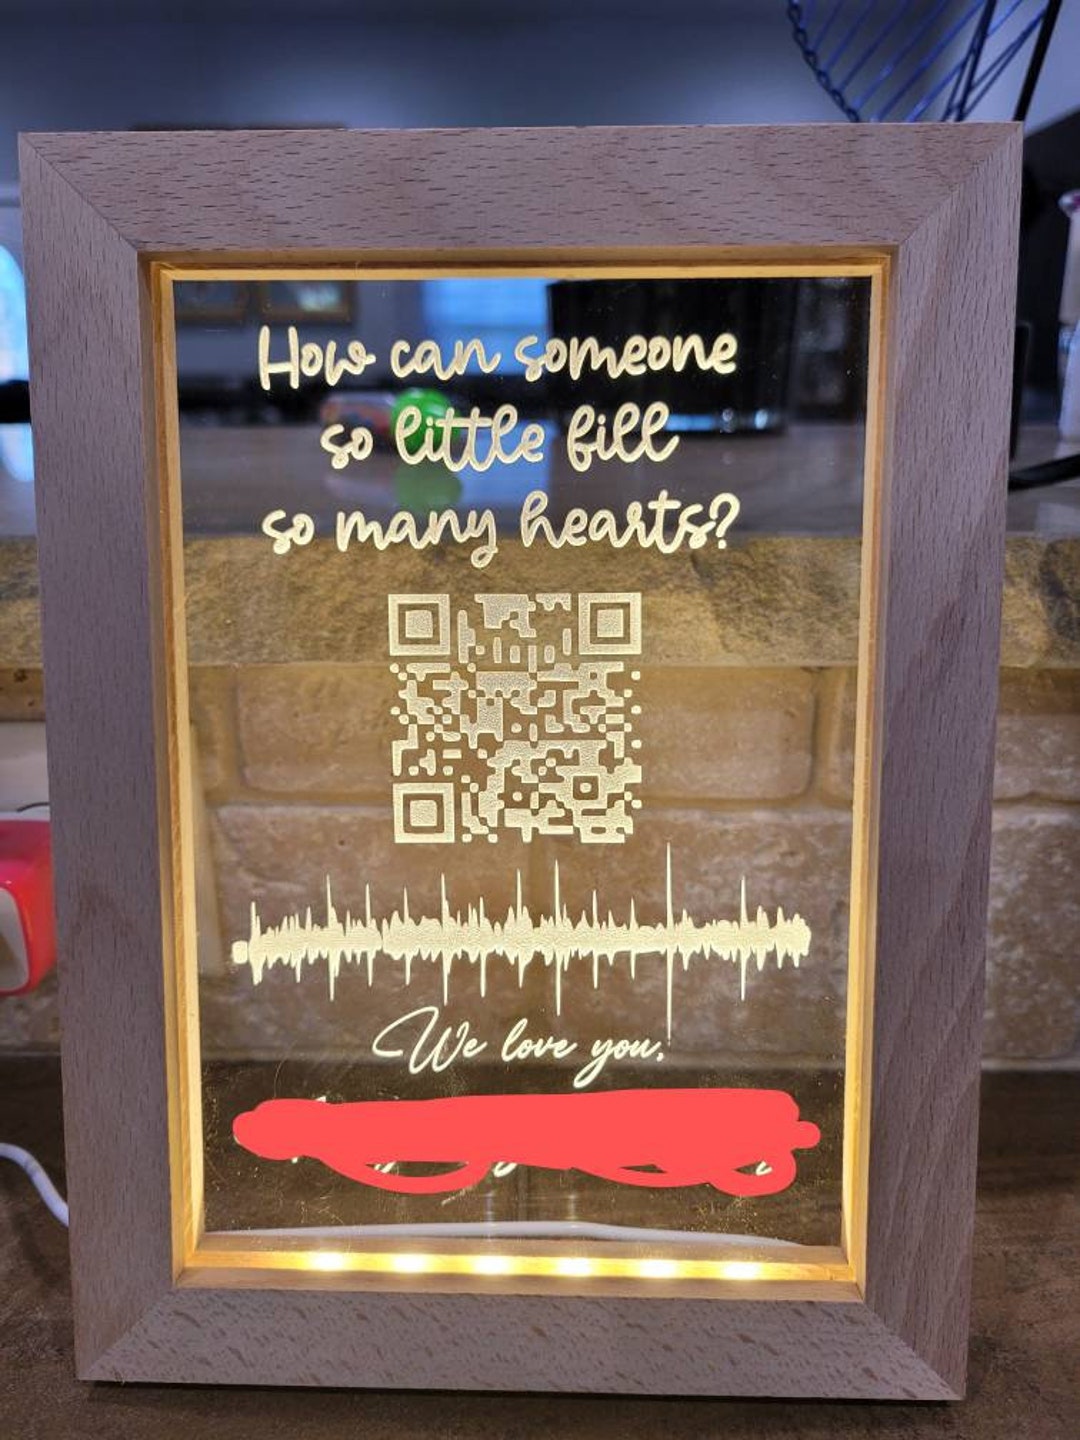 How can someone
so little fill
so many hearts?
We love you,